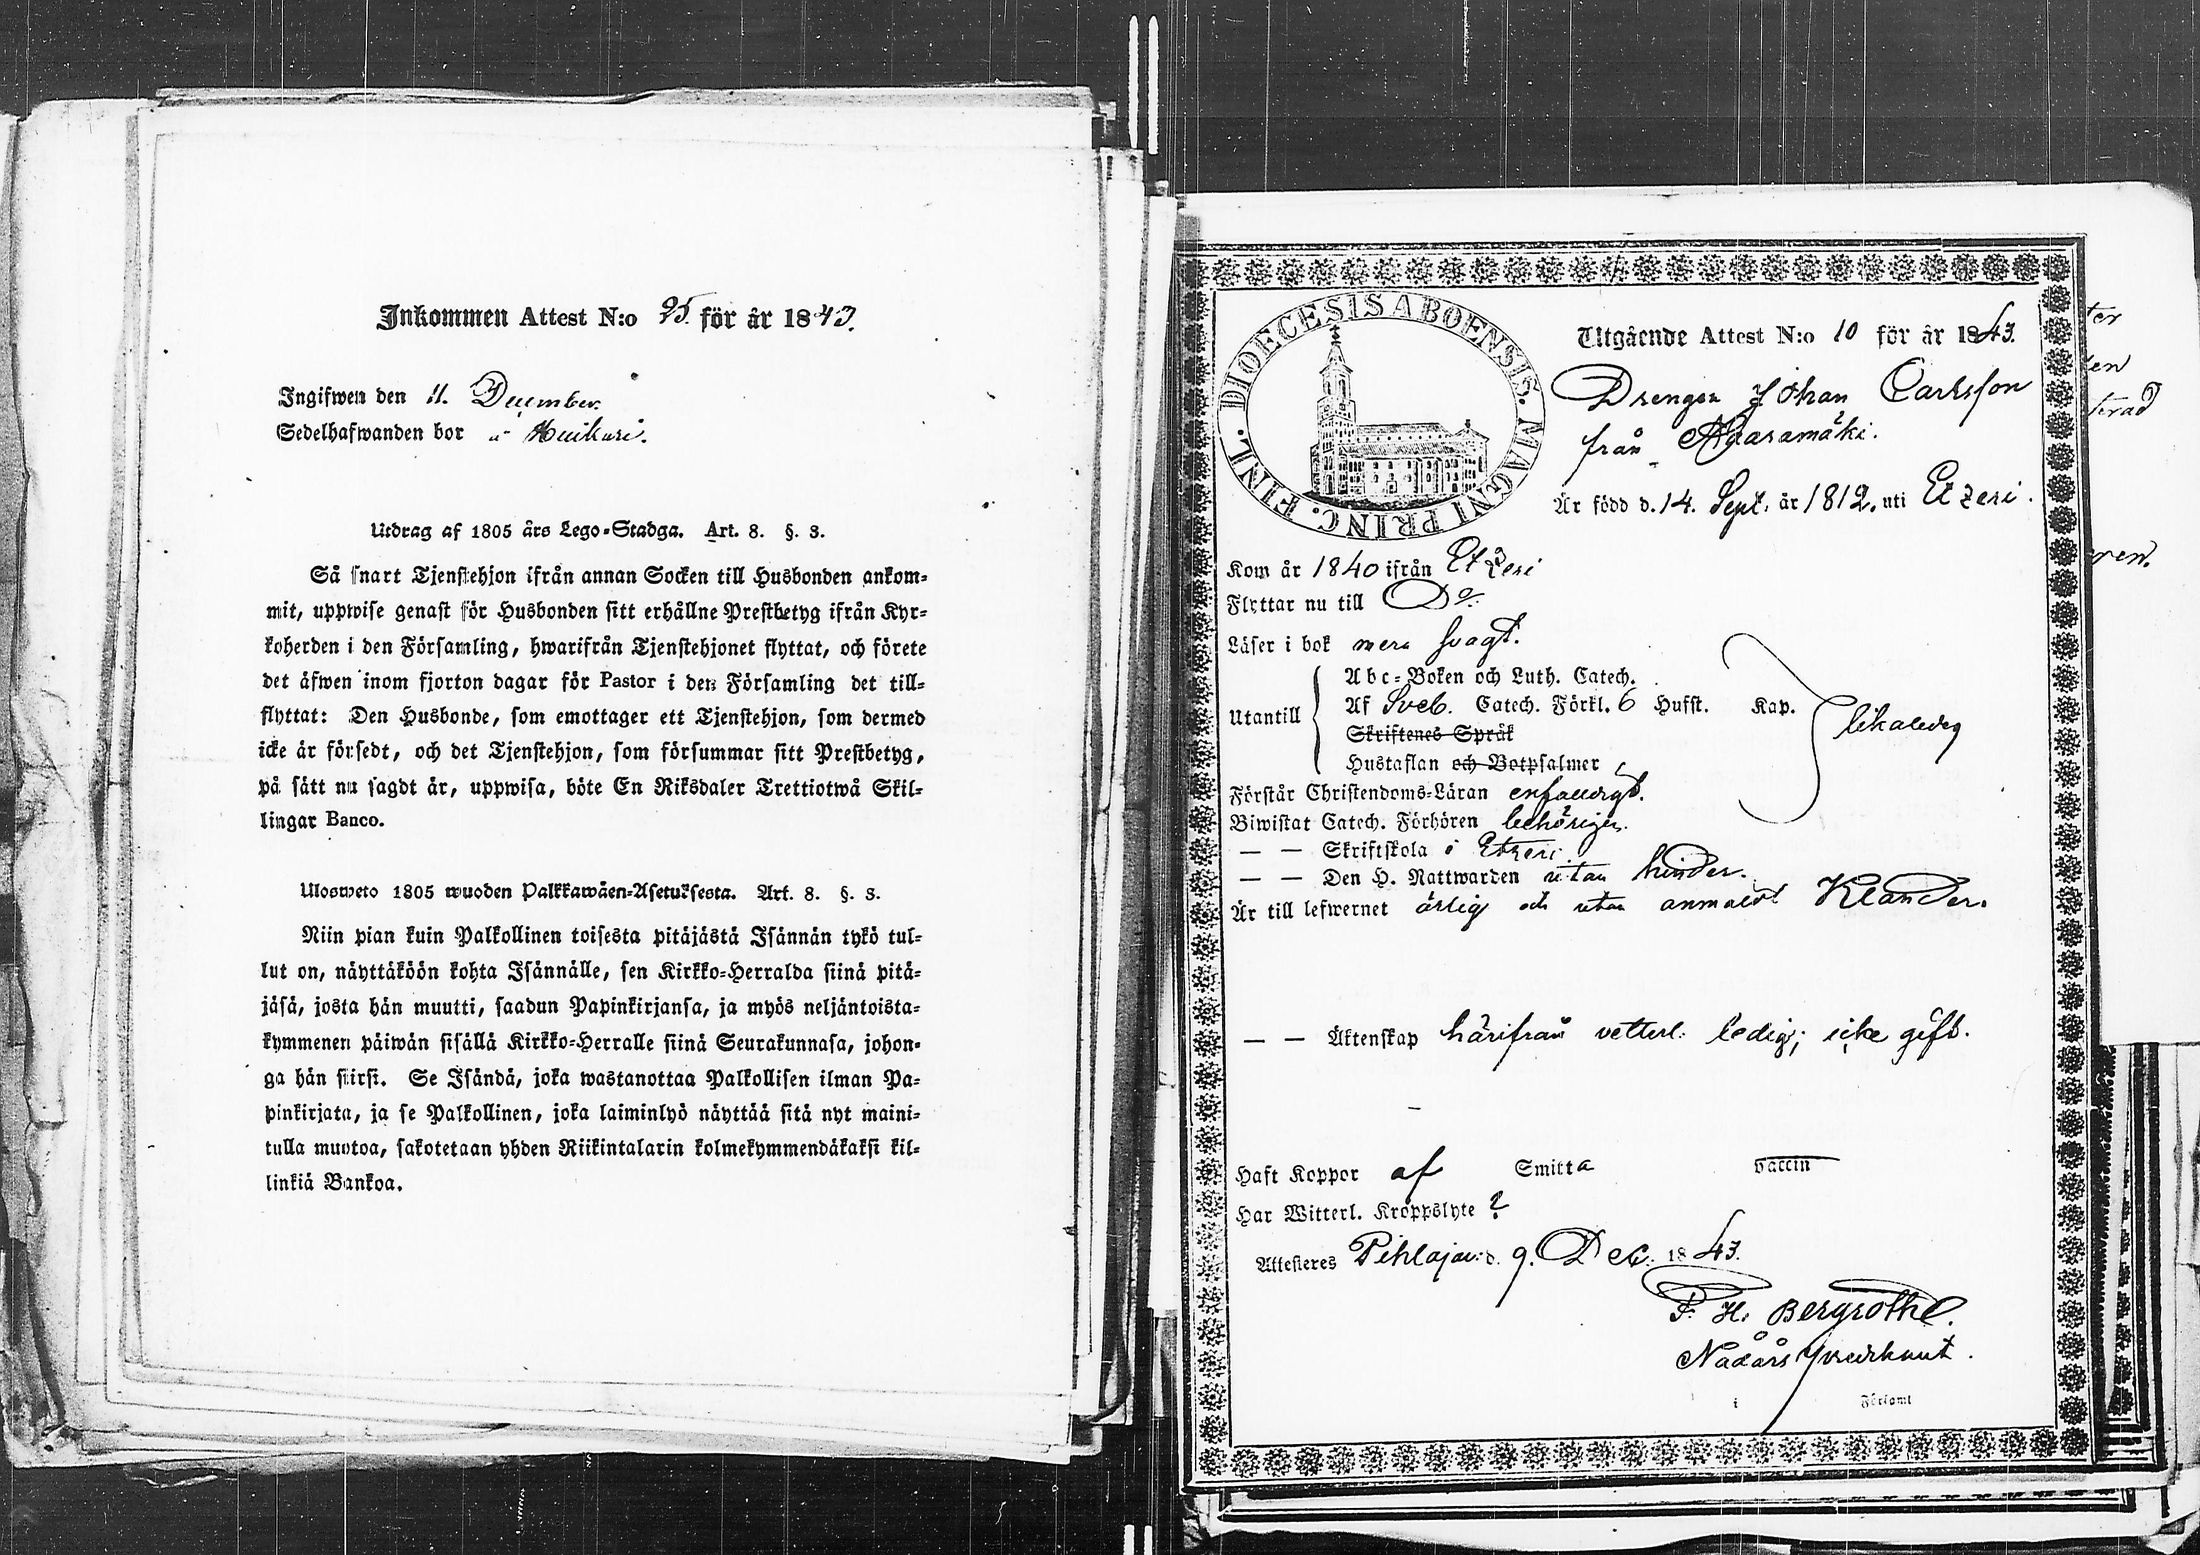 Inkommen Attest N:o 25. för år 1843.
Ingifwen den 11. December.
Sedelhafwanden bor å Huikuri.
Utdrag af 1805 års Lego-Stadga. Art. 8. §. 3.
Så snart Tjenstehjon ifrån annan Socken till Husbonden ankom-
mit, uppwise genast för Husbonden sitt erhållne Prestbetyg ifrån Kyr-
koherden i den Församling, hwarifrån Tjenstehjonet flyttat, och förete
det äfwen inom fjorton dagar för Pastor i den Församling det till-
flyttat: Den Husbonde, som emottager ett Tjenstehjon, som dermed
icke är försedt, och det Tjenstehjon, som försummar sitt Prestbetyg,
på sätt nu sagdt är, uppwisa, böte En Riksdaler Trettiotwå Skil-
lingar Banco.
Ulosweto 1805 wuoden Palkkawäen-Asetuksesta. Art. 8. §. 3.
Niin pian kuin Palkollinen toisesta pitäjästä Isännän tykö tul-
lut on, näyttäköön kohta Isännälle, sen Kirkko-Herralda siinä pitä-
jäsä, josta hän muutti, saadun Papinkirjansa, ja myös neljäntoista-
kymmenen päiwän sisällä Kirkko-Herralle siinä Seurakunnasa, johon-
ga hän siirsi. Se Isändä, joka wastanottaa Palkollisen ilman Pa-
pinkirjata, ja se Palkollinen, joka laiminlyö näyttää sitä nyt maini-
tulla muotoa, sakotetaan yhden Riikintalarin kolmekymmendäkaksi kil-
linkiä Bankoa.
DIOECESIS ABOENSIS. MAGNI PRINC. FINL.
Utgående Attest N:o 10 för år 1843.
Drengen Johan Carlsson
från Naaramäki.
Är född d. 14. Sept. år 1812. uti Etzeri.
Kom år 1840 ifrån Etzeri
Flyttar nu till Do.
Läser i bok mera svagt.
Utantill
Abc-Boken och Luth. Catech.
Af Sveb. Catech. Förkl. 6 Hufst. Kap.
Skriftenes Språk
Hustaflan och Botpsalmer
likaledes
Förstår Christendoms-Läran enfaldigt.
Biwistat Catech. Förhören behörigen.
— — Skriftskola i Etzeri.
— — Den H. Nattwarden utan hinder.
Är till lefwernet ärlig och utan anmäldt Klander.
— — Äktenskap härifrån vetterl. ledig; icke gift.
Haft Koppor af Smitta vaccin
Har Witterl. Kroppslyte ?
Attesteres Pihlajav: d. 9. Dec. 1843.
F. H. Bergroth.
Nådårs
i Församl
ter
en
ren.